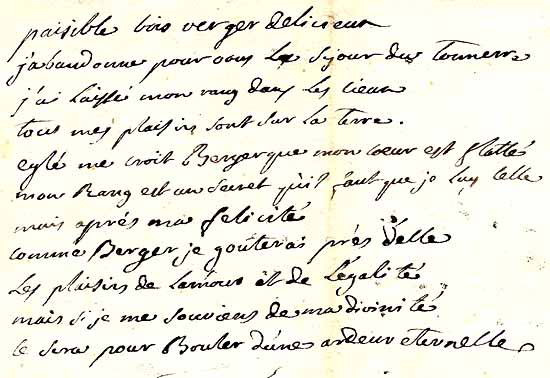 paisible bois verger delicieux
j'abandonne pour vous Le sejour du tonnerre
j'ai Laissé mon rang dans Les Cieux
tous mes plaisirs sont sur La terre.
eglé me croit Berger que mon cœur est flatté
mon Rang est un secret qu'il faut que je Luy celle
mais aprés ma felicité
comme Berger je gouterai prés d'elle
Les plaisirs de L'amour et de L'égalité
mais si je me souviens de ma divinité
ce sera pour Bruler d'une ardeur eternelle